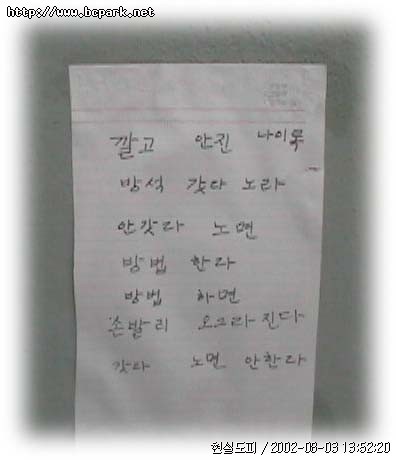 http://www.bcpark.net
깔고 안진 나이롱
방석 갖다 노라
안갖다 노면
방법 한다
방법 하면
손발리 오그라진다
갖다 노면 안한다
현실도피 / 2002-08-03 13:52:20